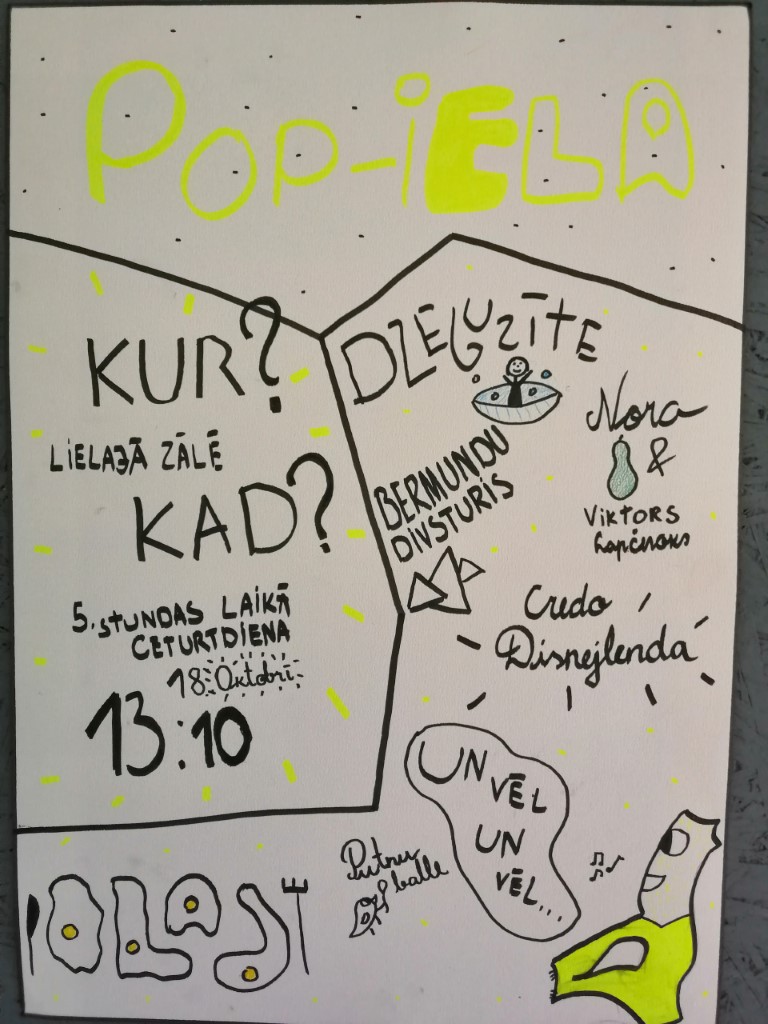 POP-IELA
KUR?
LIELAJĀ ZĀLĒ
KAD?
5. STUNDAS LAIKĀ
CETURTDIENA
18. Oktobrī
13:10
DZEGUZĪTE
BERMUNDU
DIVSTURIS
Nora
&
VIKTORS
Lapčenoks
Credo
Disnejlenda
UN VĒL
UN
VĒL...
Putnu
balle
OLAS